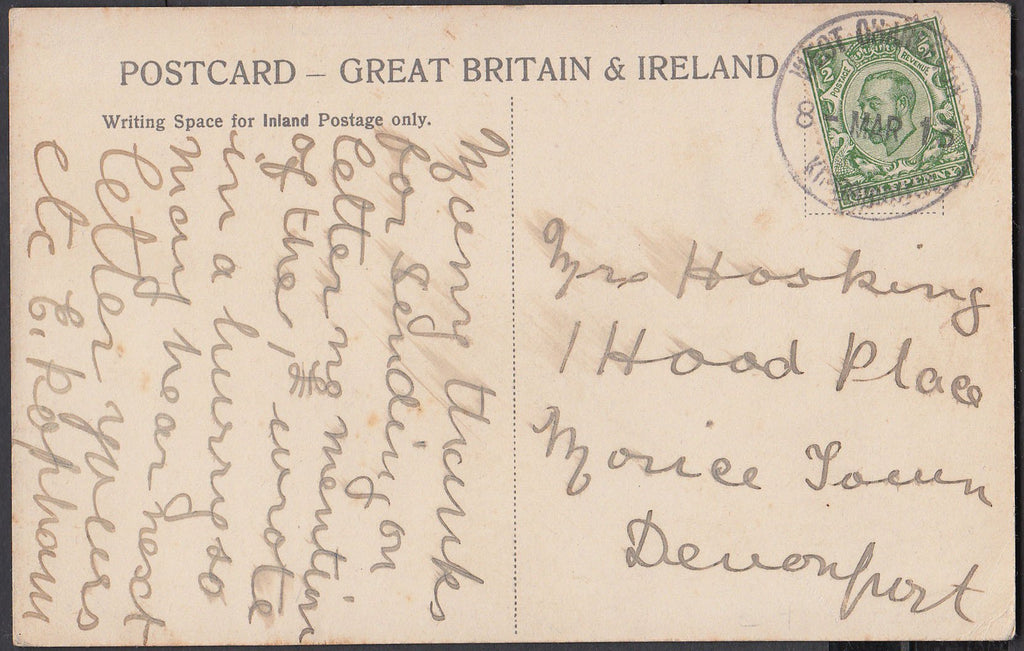 POSTCARD – GREAT BRITAIN & IRELAND
Writing Space for Inland Postage only.
POSTAGE
REVENUE
HALFPENNY
WEST
8
MAR 13
Many thanks
for sending on
letter no mention
of the, I wrote
in a hurry so
may hear next
letter yours
etc E. Popham
Mrs Hosking
1 Hood Place
Morice Town
Devonport